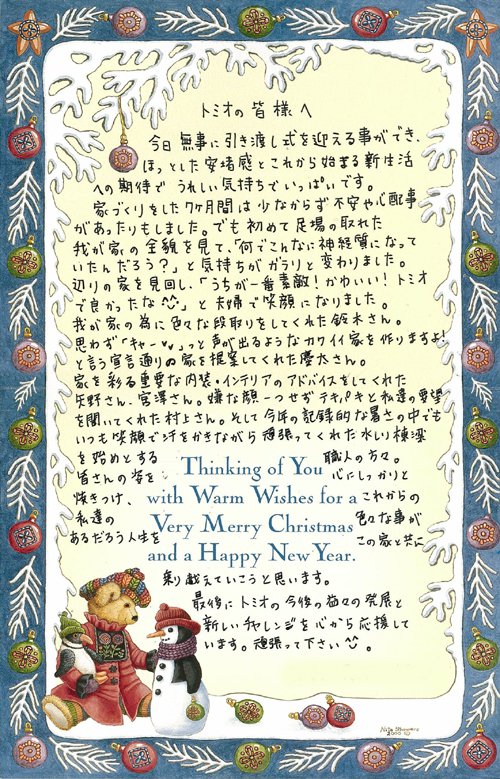 トミオの皆様へ
今日無事に引き渡し式を迎える事ができ、
ほっとした安堵感とこれから始まる新生活
への期待でうれしい気持ちでいっぱいです。
家づくりをした7ヶ月間は少なからず不安や心配事
があったりもしました。でも初めて足場の取れた
我が家の全貌を見て、「何でこんなに神経質になって
いたんだろう?」と気持ちがガラリと変わりました。
辺りの家を見回し、「うちが一番素敵!かわいい!トミオ
で良かったな^^」と夫婦で笑顔になりました。
我が家の為に色々な段取りをしてくれた鈴木さん。
思わず「キャー♥♥」っと声が出るようなカワイイ家を作りますよ!
と言う宣言通りの家を提案してくれた慶太さん。
家を彩る重要な内装・インテリアのアドバイスをしてくれた
矢野さん、宮澤さん。嫌な顔一つせずテキパキと私達の要望
を聞いてくれた村上さん。そして今年の記録的な暑さの中でも
いつも笑顔で汗をかきながら頑張ってくれた水しり棟梁
を始めとする 職人の方々。
皆さんの姿を 心にしっかりと
焼きつけ、 これからの
私達の 色々な事が
あるだろう人生を この家と共に
乗り越えていこうと思います。
最後にトミオの今後の益々の発展と
新しいチャレンジを心から応援して
います。頑張って下さい^^。
Thinking of You
with Warm Wishes for a
Very Merry Christmas
and a Happy New Year.